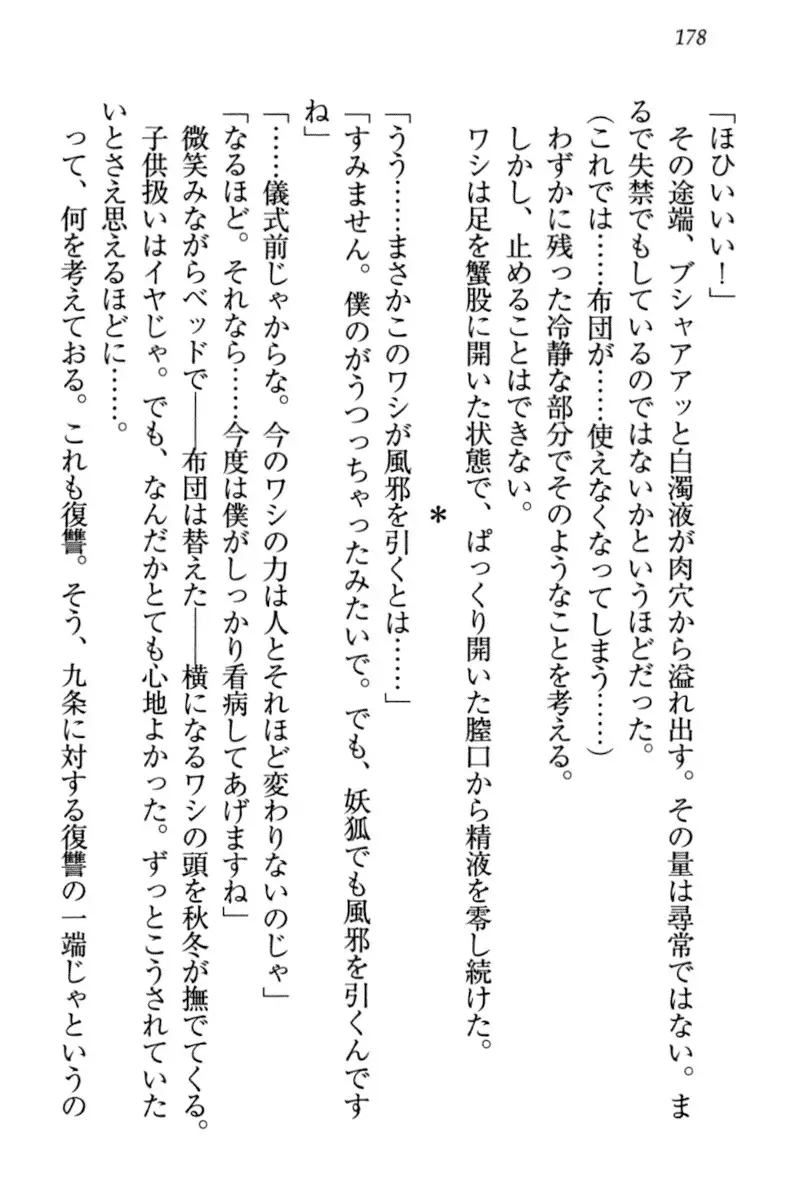 178
「ほひいいい！」
その途端、ブシャアアッと白濁液が肉穴から溢れ出す。その量は尋常ではない。ま
るで失禁でもしているのではないかというほどだった。
（これでは……布団が……使えなくなってしまう……）
わずかに残った冷静な部分でそのようなことを考える。
しかし、止めることはできない。
ワシは足を蟹股に開いた状態で、ぱっくり開いた膣口から精液を零し続けた。
＊
「うう……まさかこのワシが風邪を引くとは……」
「すみません。僕のがうつっちゃったみたいで。でも、妖狐でも風邪を引くんです
ね」
「……儀式前じゃからな。今のワシの力は人とそれほど変わりないのじゃ」
「なるほど。それなら……今度は僕がしっかり看病してあげますね」
微笑みながらベッドで――布団は替えた――横になるワシの頭を秋冬が撫でてくる。
子供扱いはイヤじゃ。でも、なんだかとても心地よかった。ずっとこうされていた
いとさえ思えるほどに……。
って、何を考えておる。これも復讐。そう、九条に対する復讐の一端じゃというの